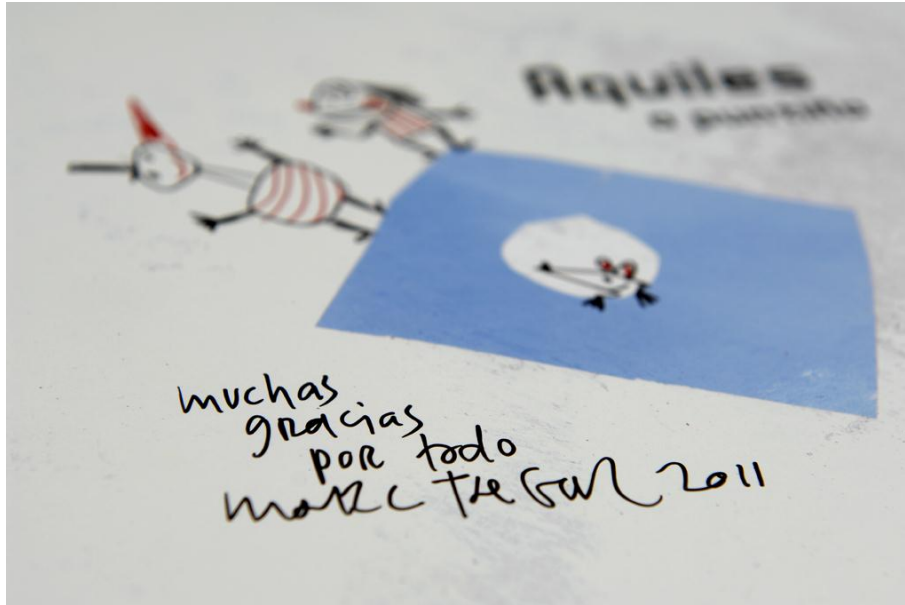 Aquiles
o puntiño
muchas
gracias
por todo
marc
2011